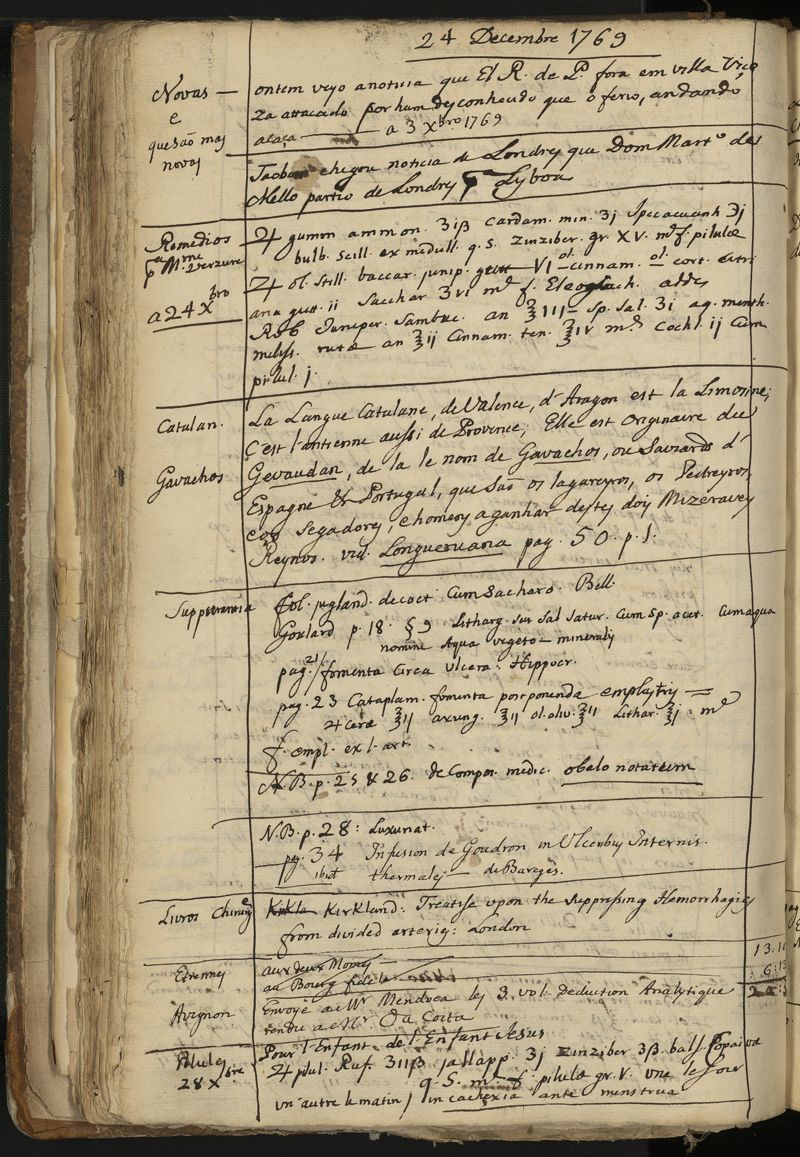 24 Decembre 1769
Novas —
e
que são mas
novas
ontem veyo a notisia que El R. de P. fora em villa Viço
za attacado por hum desconhecido que o ferio, andando
a caça — a 3 Xbro 1769
chegou noticia de Londres que Dom Mart.o de
Mello partio de Londres Lyboa
Remedios
pa Mme
a 24 Xbro
♃ gumm ammon. ʒiβ Cardam. min. ʒj Ipecacuanh ℈j
bulb. scill. ex medull. q. s. Zinziber. gr. XV. md f. pilulæ
♃ ol. still. baccar. junip. gutt VI — ol. cinnam. ol. cort. citri
ana gutt. ii Sacchar ʒvi md f. Eleosach. addes
Rob Juniper. Sambuc. an ℥III — Sp. Sal. ʒi aq. menth.
meliss. rutæ an ℥ij Cinnam. ten. ℥iv md Cochl. ij Cum
pilul. j.
Catalan.
Gavachos
La Langue Catalane, de Valence, d'Aragon est la Limosine;
C'est l'antienne aussi de Provence; Elle est Originaire du
Gevaudan, de la le nom de Gavachos, ou Saviards d'
Espagne & Portugal, que são os lagareyros, os Pedreyros,
e os Segadores, e homens a ganhar destes dois Mizeraveis
Reynos. vid. Longueruana pag. 50. p. 1.
fol. jugland. decoct Cum Sacharo. Bell
Goulard p. 18. §9 Litharg. seu Sal Satur. Cum Sp. acet. Cum aqua
nomine Aqua vegeto-mineralis
pag. 21/ fomenta Circa Ulcera: Hippocr.
pag. 23 Cataplam. fomenta postponenda emplastris =
♃ ceræ ℥ij axung. ℥ij ol. oliv. ℥ij Lithar. ℥j. md
f. empl. ex l. art.
N.B. p. 25 & 26. de Compos. medic. obelo notatum
N.B. p. 28: Luxuriat.
pag. 34 Infusion de Goudron in Ulceribus Internis.
ibid thermales — de Bareges.
Livros Chirurg
Kirkla Kirkland: Treatise upon the suppressing Hemorrhagies
from divided arteries: London
Etrennes
aux deux
au Bourg
13:1
: 6:1
Avignon
Envoyé a Mr Mendoca les 3 vol. Deduction Analytique
rendu a Mr. Da Costa
Pilules
28 Xbre
Pour l'Enfant de l'Enfant Jesus
♃ pilul. Ruf. ʒiiβ jallapp. ʒj Zinziber ʒβ. bals. Copaivæ
q. S. md f. pilulæ gr. V. une le soir
un' autre le matin / in cachexia ante menstrua